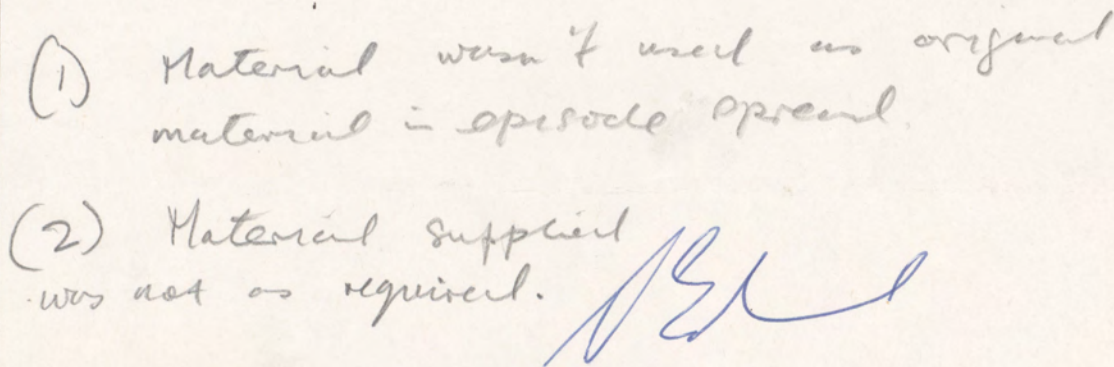 (1) Material wasn't used as original
material in episode spread.
(2) Material supplied
was not as required.